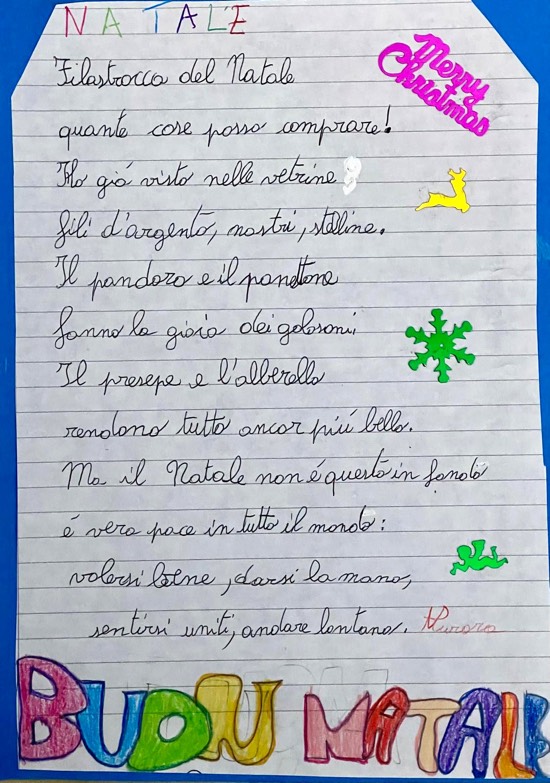 NATALE
Merry
Christmas
Filastrocca del Natale
quante cose posso comprare!
Ho giá visto nelle vetrine
fili d'argento, nastri, stelline.
Il pandoro e il panettone
fanno la gioia dei golosoni.
Il presepe e l'alberello
rendono tutto ancor piú bello.
Ma il Natale non é questo in fondo
é vera pace in tutto il mondo:
volersi bene, darsi la mano,
sentirsi uniti, andare lontano. Aurora
BUON NATALE